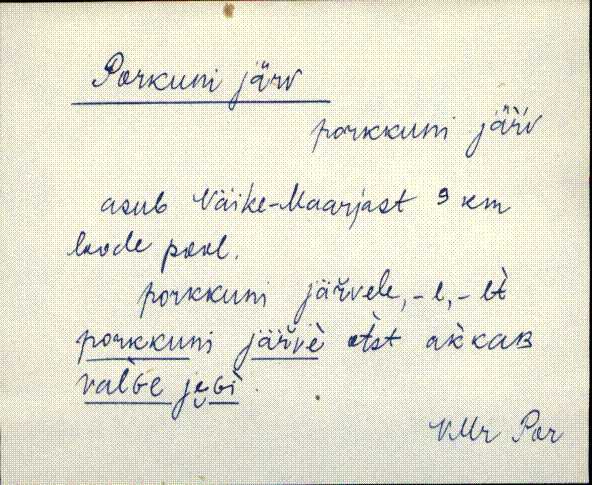 Porkuni järv
porkkuni jäŕv
asub Väike-Maarjast 9 km
loode pool.
porkkuni järvele, -l, -lt
porkkuni järve otst akkaB
valGe jeGi.
VMr Por